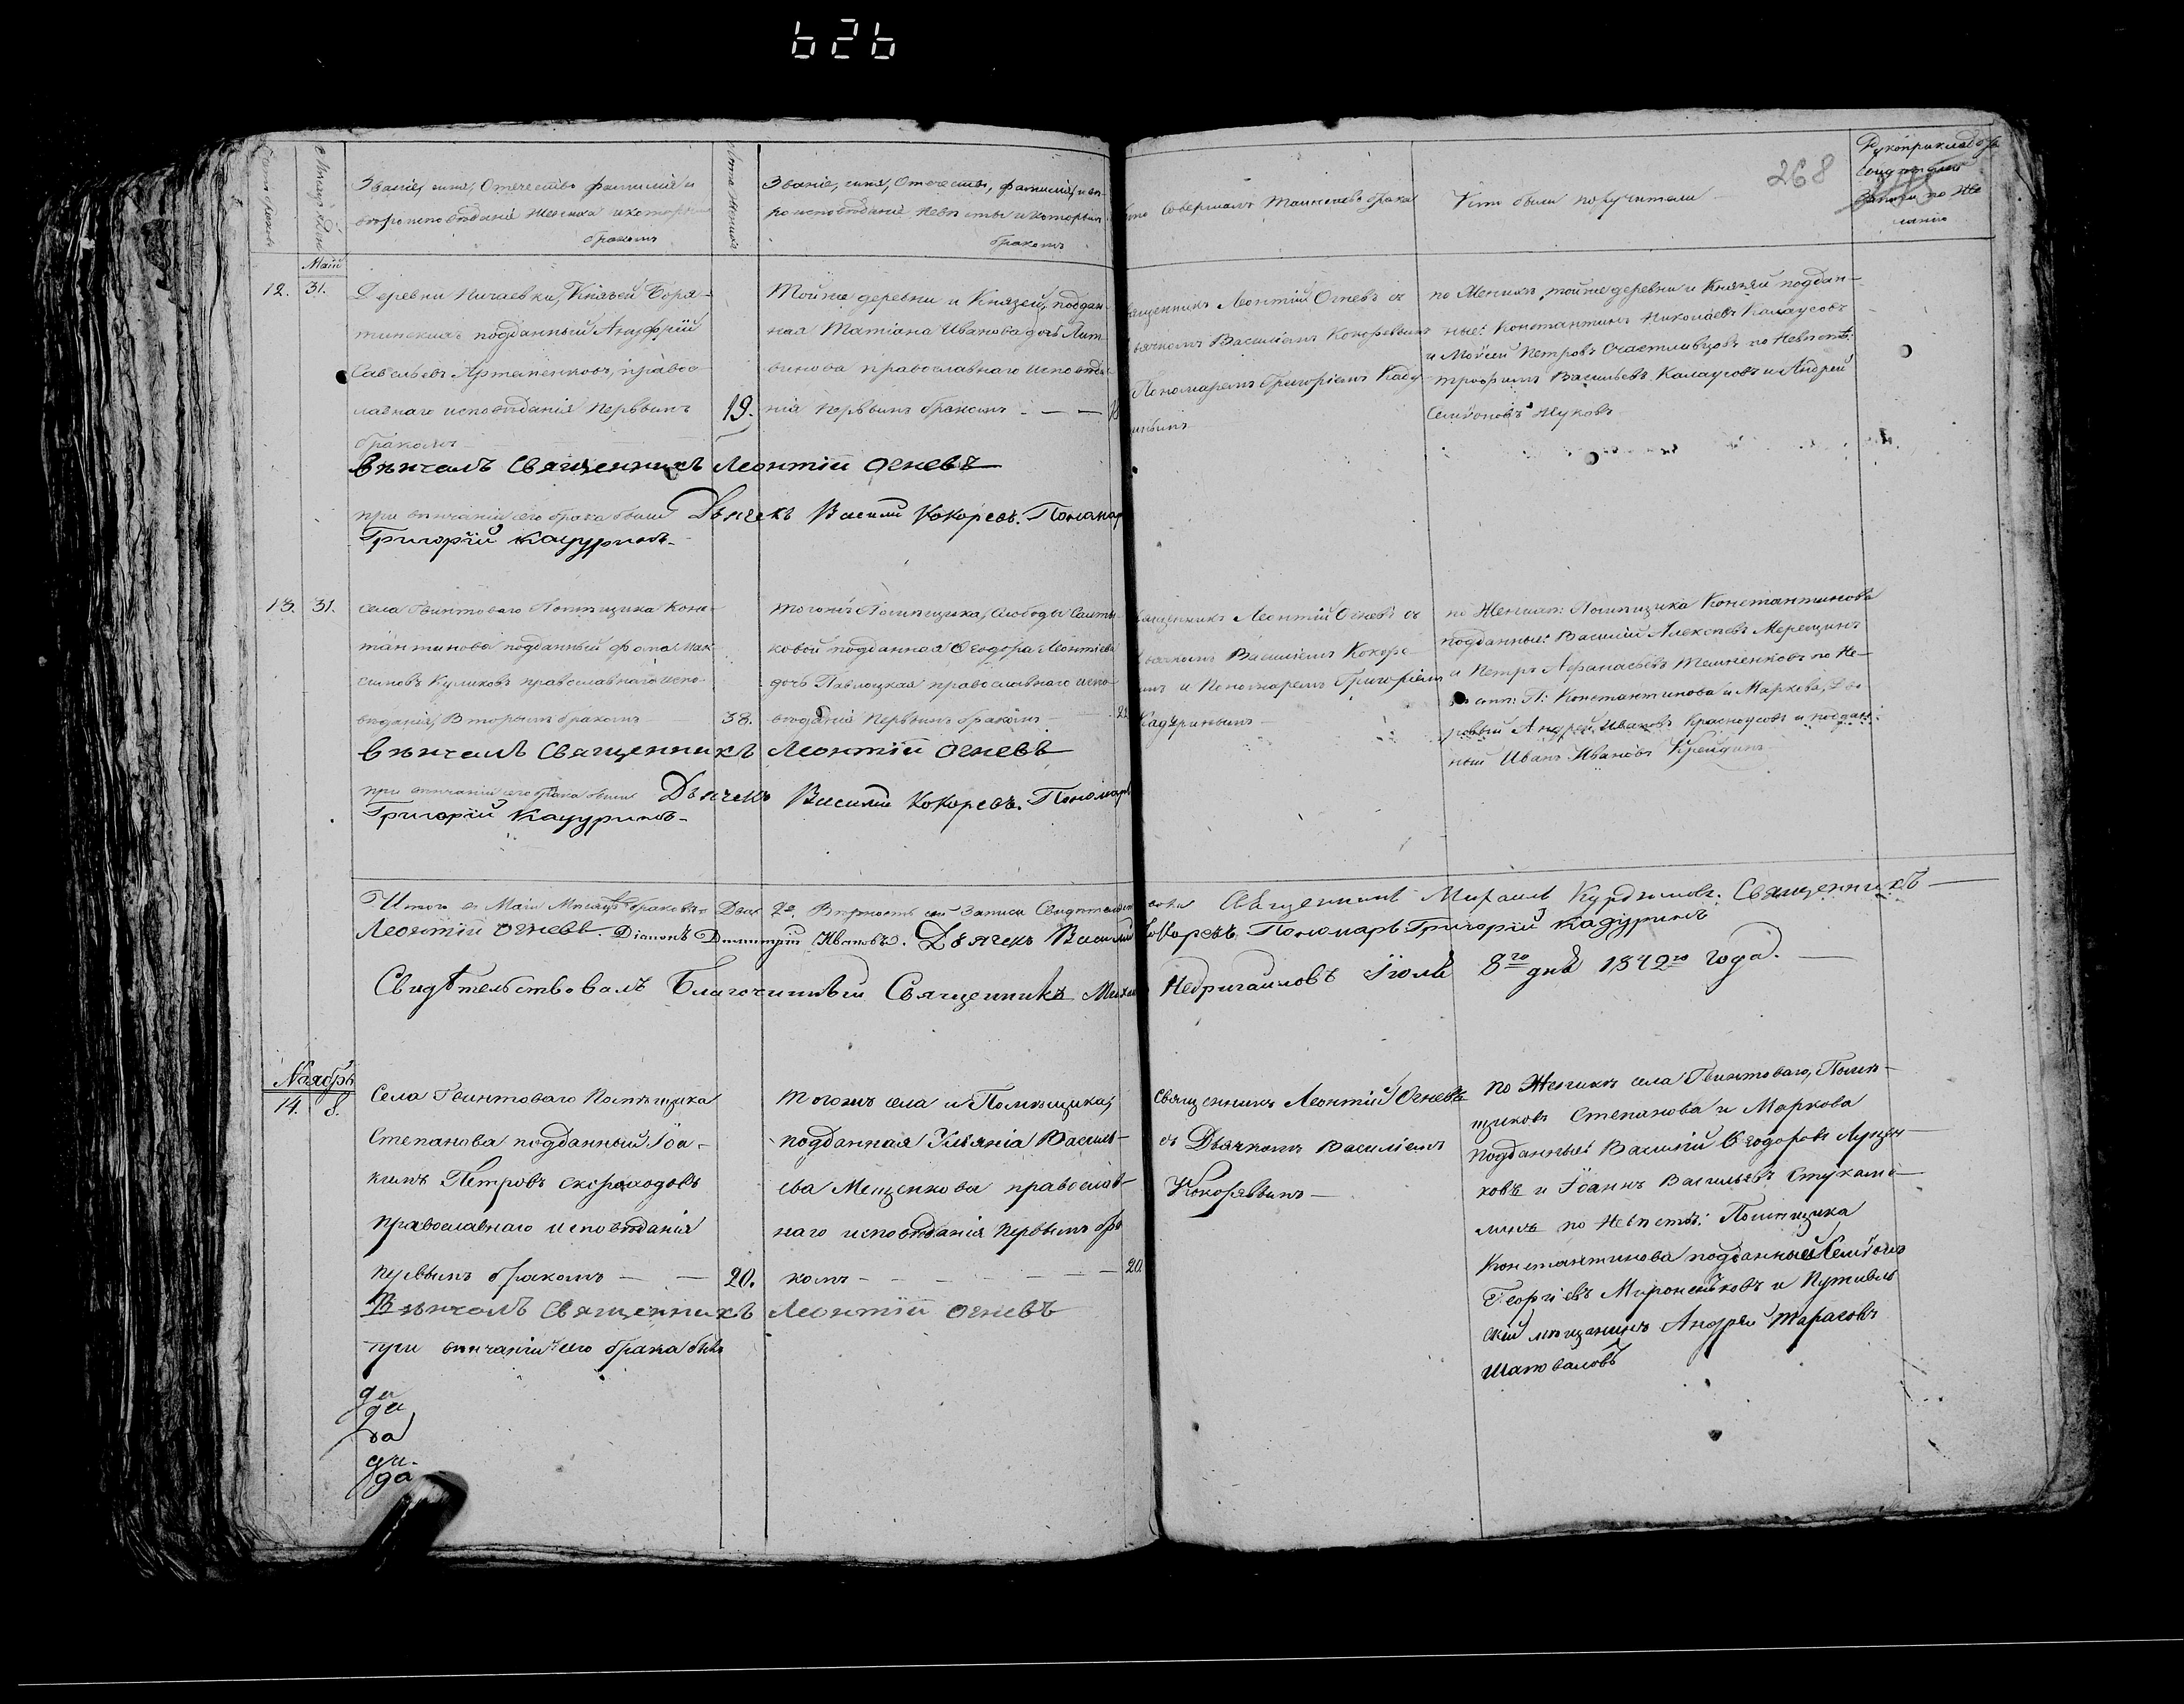 626
268
Счетъ браковъ
Мѣсяцъ и День
Званіе, имя, Отечество фамилія и
вѣроисповѣданіе Жениха и которымъ
бракомъ
Лѣта Жениха
Званіе, имя, Отечество, фамилія, и вѣ-
роисповѣданіе Невѣсты и которымъ
бракомъ
Кто совершалъ Таинство брака
Кто были поручители
Рукоприкладство
Свидѣтелей
Записи по Же
ланію
Май
12.
31.
Деревни Ничаевки, Князей Боря-
тинскихъ подданный Ануфрій
Савельевъ Артененковъ, правос-
лавнаго исповѣданія первымъ
бракомъ
19.
Тойже деревни и Князей, поддан-
ная Татіана Иванова дочь Лит-
винова православнаго исповѣда-
нія первымъ бракомъ
Священникъ Леонтій Огневъ съ
Дьячкомъ Василіемъ Кокоревымъ
Пономаремъ Григоріемъ Каду
инымъ
по Женихѣ тойже деревни и Князей поддан-
ные: Константинъ Николаевъ Калаусовъ
и Моисей Петровъ Счастливцовъ по Невѣстѣ:
Трофимъ Васильевъ Калаусовъ и Андрей
Семіоновъ Жуковъ
Вѣнчалъ Священникъ Леонтій Огневъ
при вѣнчаніи сего брака были Дьячекъ Василій Кокоревъ. Пономарь
Григорій Кадуринъ.
13.
31.
села Гвинтоваго Помѣщика Конс-
тантинова подданный Фома Мак-
симовъ Куликовъ православнаго испо-
вѣданія, Вторымъ бракомъ
38.
тогожъ Помѣщика, Слободы
ковой подданная Ѳеодора Леонтіева
дочь Павлоцкая православнаго испо-
вѣданія первымъ бракомъ
21
Священникъ Леонтій Огневъ съ
Дьячкомъ Василіемъ Кокоре
ымъ и Пономаремъ Григоріемъ
Кадуринымъ
по Женихѣ: Помѣщика Константинова
подданные: Василій Алексѣевъ Мерещинъ
и Петръ Афанасьевъ по Не-
вѣстѣ: П: Константинова и Маркова, Дво
ровый Андрей Ивановъ Красноусовъ и поддан-
ный Иванъ Ивановъ
Вѣнчалъ Священникъ Леонтій Огневъ
при вѣнчаніи сего брака были Дьячекъ Василій Кокоревъ. Пономарь
Григорій Кадуринъ.
Итого въ Маѣ Мѣсяцѣ браковъ Два 2. Вѣрность сей Записи Свидѣтельст вова Священникъ Михаилъ Курдюмовъ. Священникъ
Леонтій Огневъ. Діаконъ Димитрій Ивановъ. Дьячекъ Василій Кокоревъ. Пономарь Григорій Кадуринъ
Свидѣтельствовалъ Благочинный Священникъ Миха Недригайловъ Іюля 8го дня 1842го года.
Ноябрь
14.
8.
Села Гвинтоваго Помѣщика
Степанова подданный Іоа-
кимъ Петровъ Скороходовъ
православнаго исповѣданія
первымъ бракомъ
20.
тогожъ села и Помѣщика,
подданная Ульянія Василь-
ева Мещенкова православ-
наго исповѣданія первымъ бра
комъ
20.
Священникъ Леонтій Огневъ
съ Дьячкомъ Василіемъ
Кокоревымъ
по Женихѣ села Гвинтоваго, Помѣ-
щиковъ Степанова и Маркова
подданные: Василій Ѳеодоровъ Лущен
ковъ и Іоаннъ Васильевъ Стукало-
минъ по Невѣстѣ: Помѣщика
Константинова подданный Семіонъ
Георгіевъ Мироненковъ и Путивль
скій мѣщанинъ Андрей Тарасовъ
Шаповаловъ
Вѣнчалъ Священникъ Леонтій Огневъ
при вѣнчаніи сего брака былъ
да
да
да
да
да